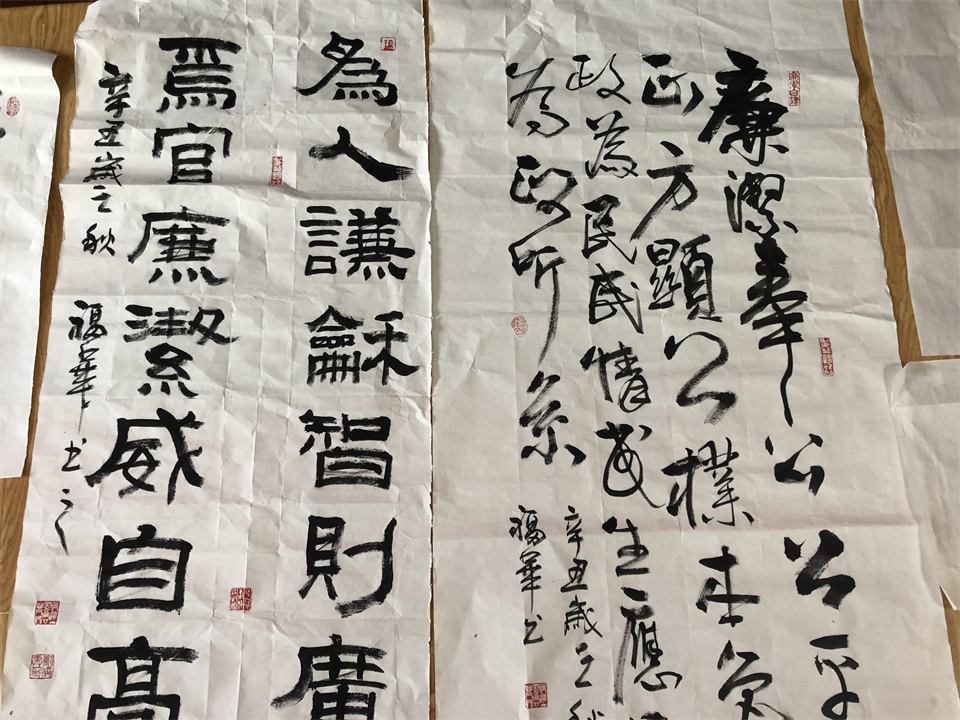 廉潔奉公公平
正方顯公樸本色
政為民民情民生應
為政所系
辛丑歲之秋
福華书
為人謙龢智則廣
焉官廉潔威自高
辛丑歲之秋
福華书之